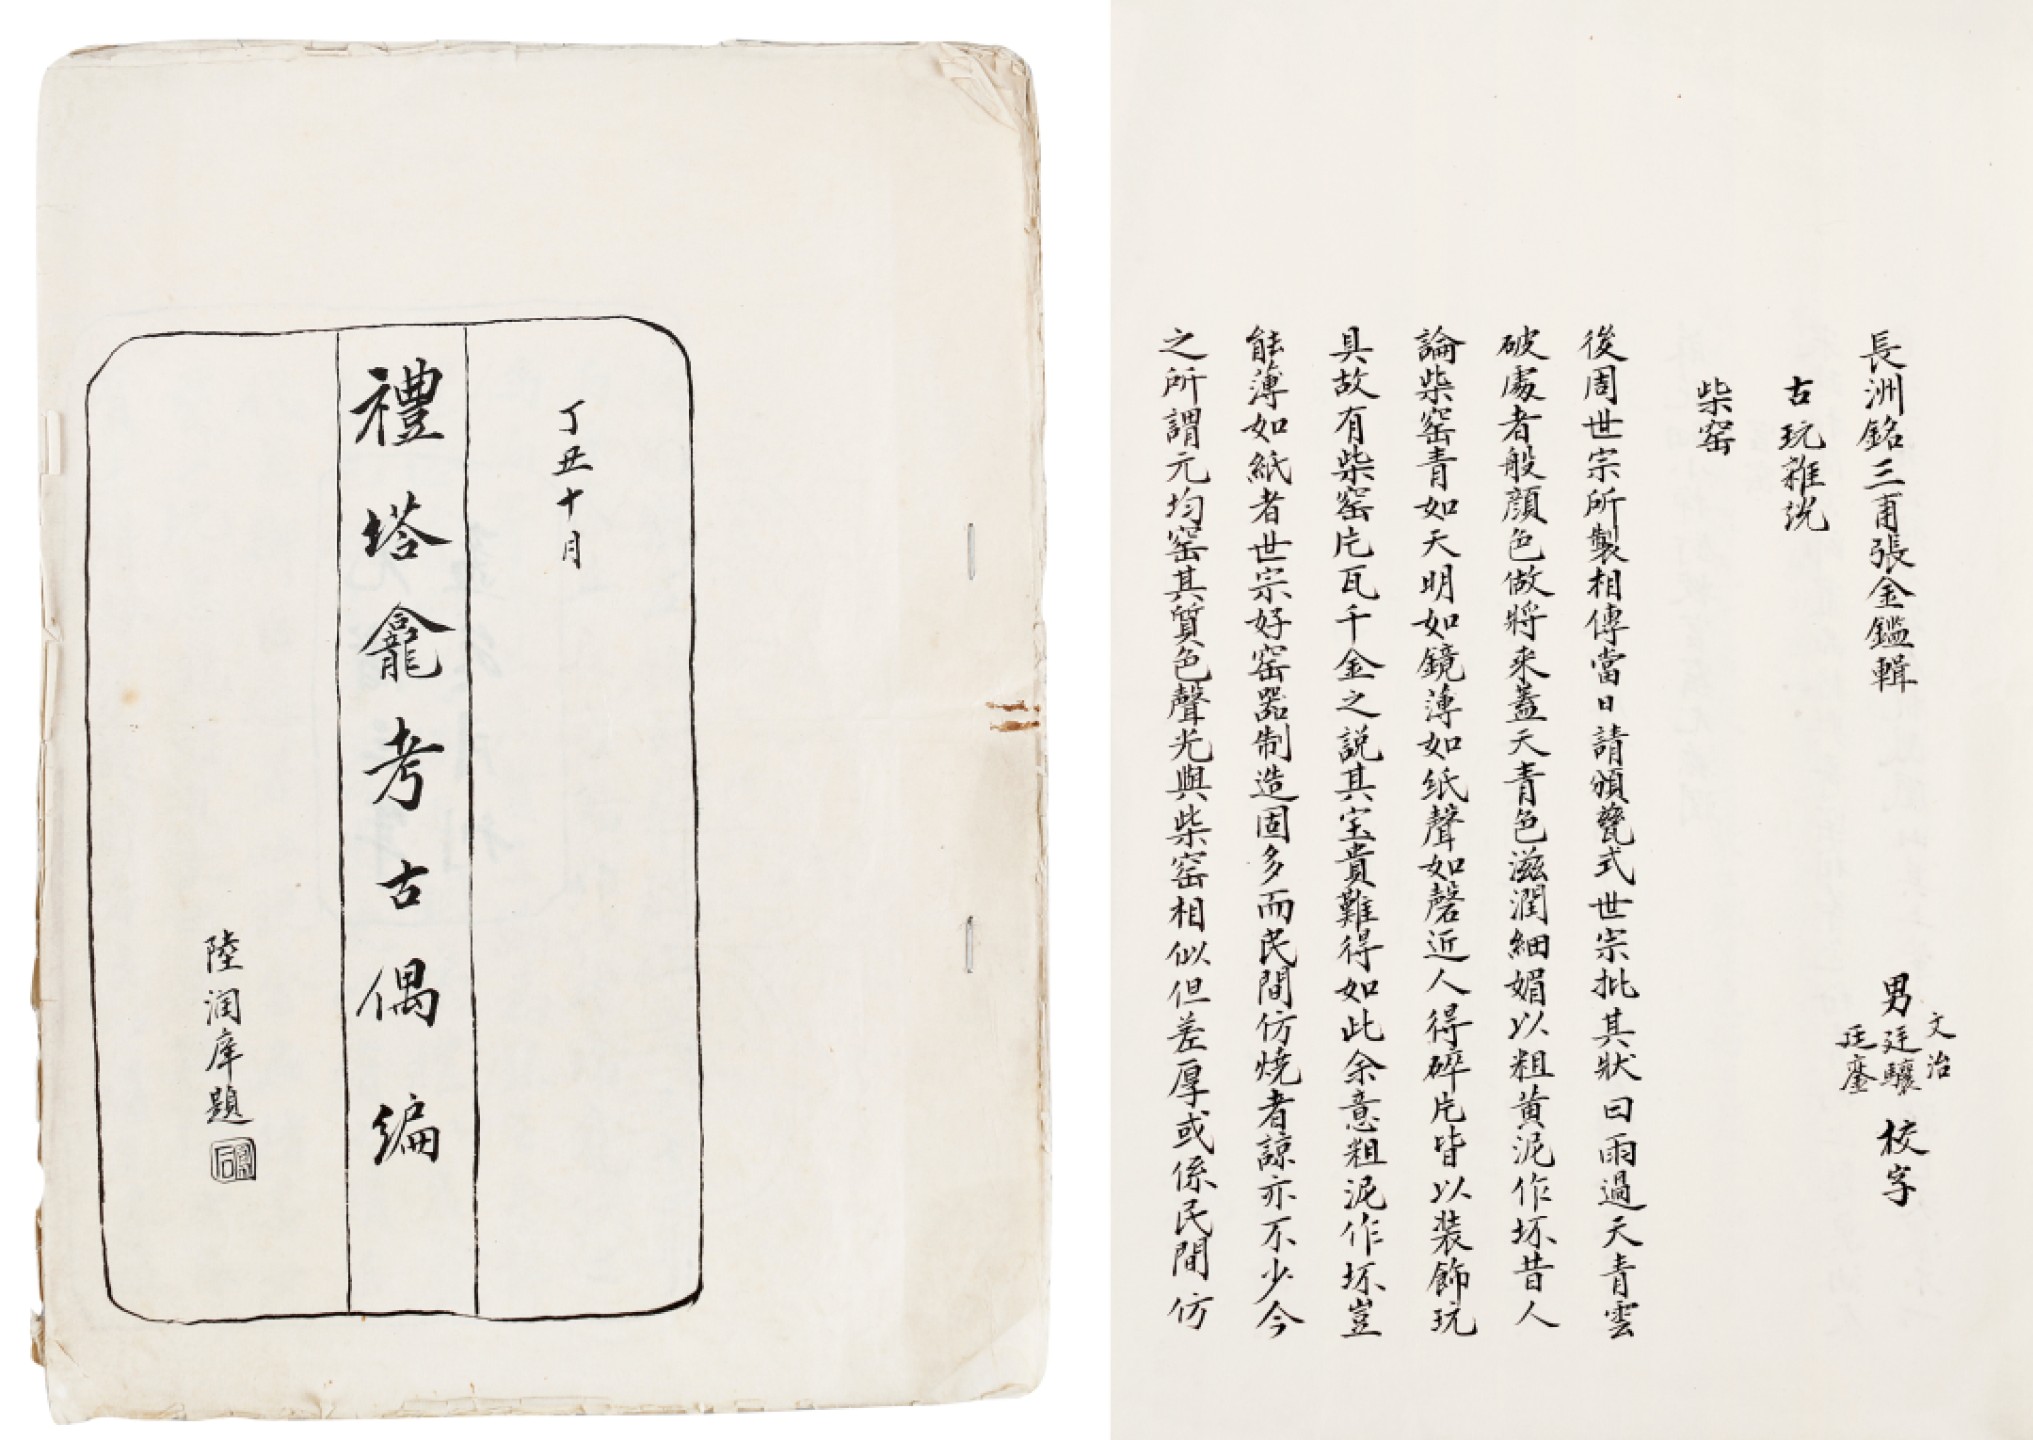 丁丑十月
禮塔龕考古偶編
陸潤庠題
長洲銘三甫張金鑑輯
男
文治
廷驤
廷鑾
校字
古玩雜說
柴窑
後周世宗所製相傳當日請頒甆式世宗批其狀曰雨過天青雲
破處者般顔色做將来蓋天青色滋潤細媚以粗黄泥作坏昔人
論柴窑青如天明如鏡薄如紙聲如磬近人得碎片皆以装飾玩
具故有柴窑片瓦千金之説其宝貴難得如此余意粗泥作坏豈
能薄如紙者世宗好窑器制造固多而民間仿燒者諒亦不少今
之所謂元均窑其質色聲光與柴窑相似但差厚或係民間仿